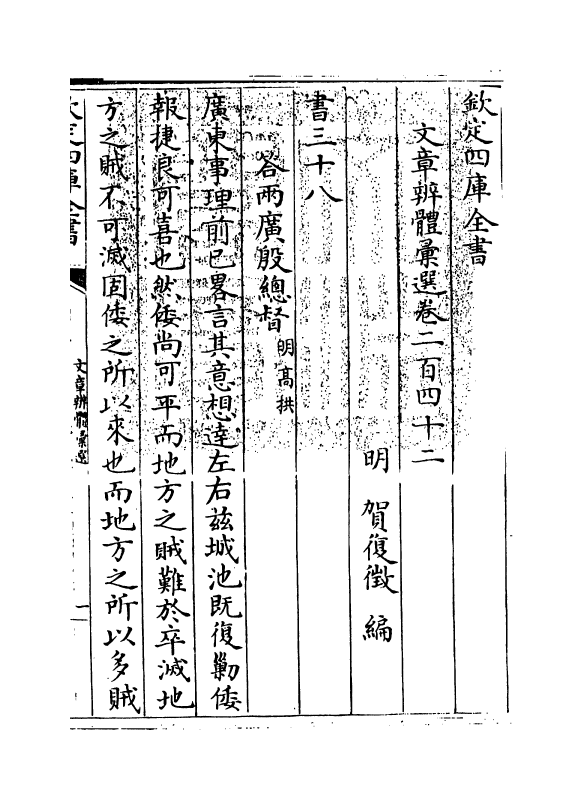 欽定四庫全書
文章辨體彙選卷二百四十二
明 賀復徵 編
書三十八
答兩廣殷總督 明高拱
廣東事理前已畧言其意想達左右兹城池既復勦倭
報捷良可喜也然倭尚可平而地方之賊難於卒滅地
方之賊不可滅固倭之所以來也而地方之所以多賊
欽定四庫全書
文章辨體彙選
一